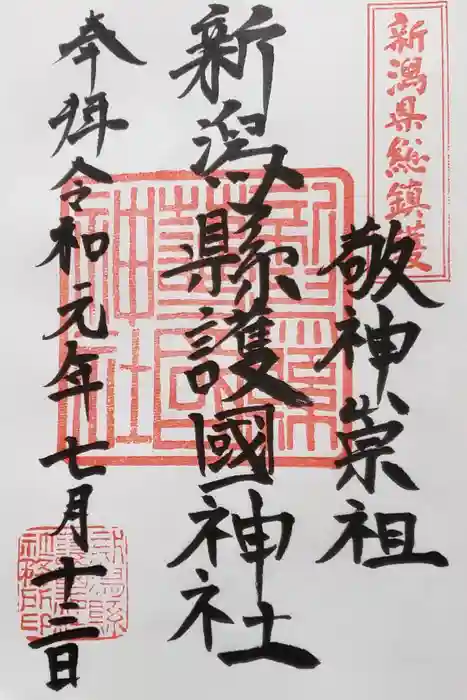 新潟県総鎮護
敬神崇祖
新潟縣護國神社
奉拝令和元年七月十三日